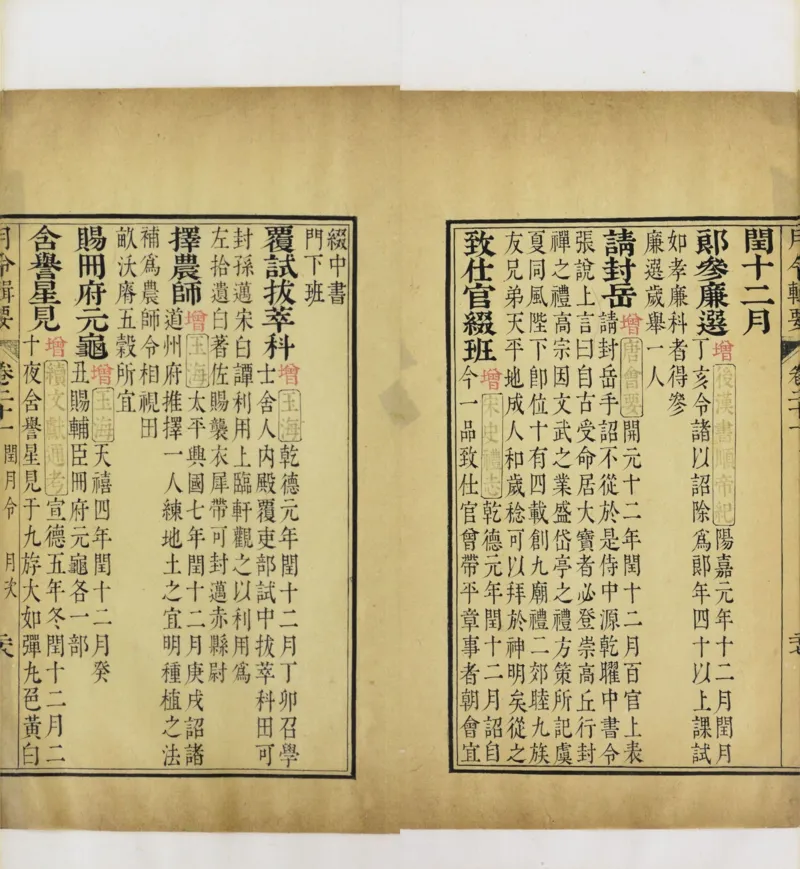 月令輯要 卷二十一
閏十二月
郞參廉選 增後漢書 帝紀陽嘉元年十二月閏月
丁亥令諸以詔除爲郎年四十以上課試
如孝廉科者得參
廉選歲舉一人
請封岳 增唐會要開元十二年閏十二月百官上表
請封岳手詔不從於是侍中源乾曜中書令
張說上言曰自古受命居大寶者必登崇高丘行封
禪之禮高宗因文武之業盛岱亭之禮方策所記虞
夏同風陛下卽位十有四載創九廟禮二郊睦九族
友兄弟天平地成人和歲稔可以拜於神明矣從之
致仕官綴班 增宋史禮志乾德元年閏十二月詔自
今一品致仕官曾帶平章事者朝會宜
綴中書
門下班
覆試拔萃科 增玉海乾德元年閏十二月丁卯召學
士舍人内殿覆吏部試中拔萃科田可
封孫邁宋白譚利用上臨軒觀之以利用爲
左拾遺白著佐賜襲衣犀帶可封邁赤縣尉
擇農師 增玉海太平興國七年閏十二月庚戌詔諸
道州府推擇一人練地土之宜明種植之法
補爲農師令相視田
畝沃瘠五穀所宜
賜冊府元龜 增玉海天禧四年閏十二月癸
丑賜輔臣冊府元龜各一部
含譽星見 增續文獻通考宣德五年冬閏十二月二
十夜含譽星見于九斿大如彈丸色黃白
月令輯要 卷二十一 閏月令 月次